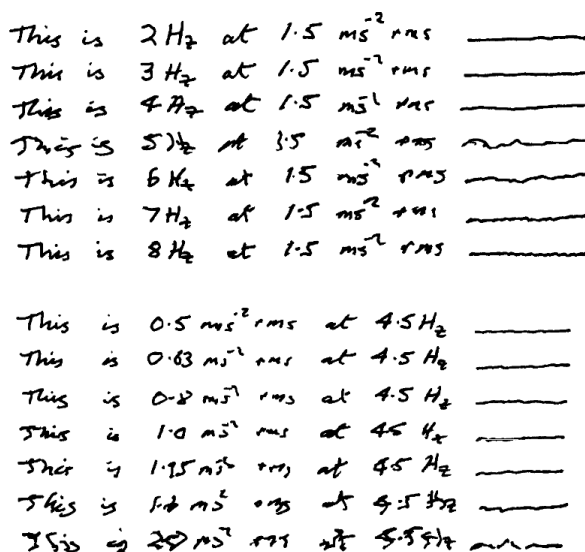 This is 2 Hz at 1.5 ms⁻² rms
This is 3 Hz at 1.5 ms⁻² rms
This is 4 Hz at 1.5 ms⁻² rms
This is 5 Hz at 1.5 ms⁻² rms
This is 6 Hz at 1.5 ms⁻² rms
This is 7 Hz at 1.5 ms⁻² rms
This is 8 Hz at 1.5 ms⁻² rms
This is 0.5 ms⁻² rms at 4.5 Hz
This is 0.63 ms⁻² rms at 4.5 Hz
This is 0.8 ms⁻² rms at 4.5 Hz
This is 1.0 ms⁻² rms at 4.5 Hz
This is ms⁻² rms at 4.5 Hz
This is ms⁻² rms at 4.5 Hz
This is ms⁻² rms at Hz